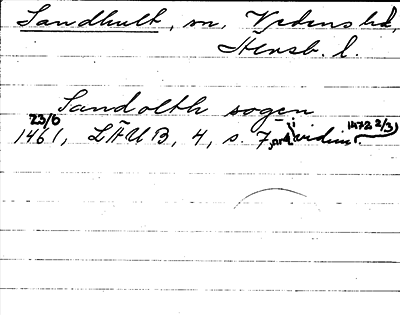 Sandhult, sn, Vedens hd,
Älvsb. l.
Sandolth sogen
23/6
1461, LÄUB, 4, s. 7, i vidim. 1472 2/3)